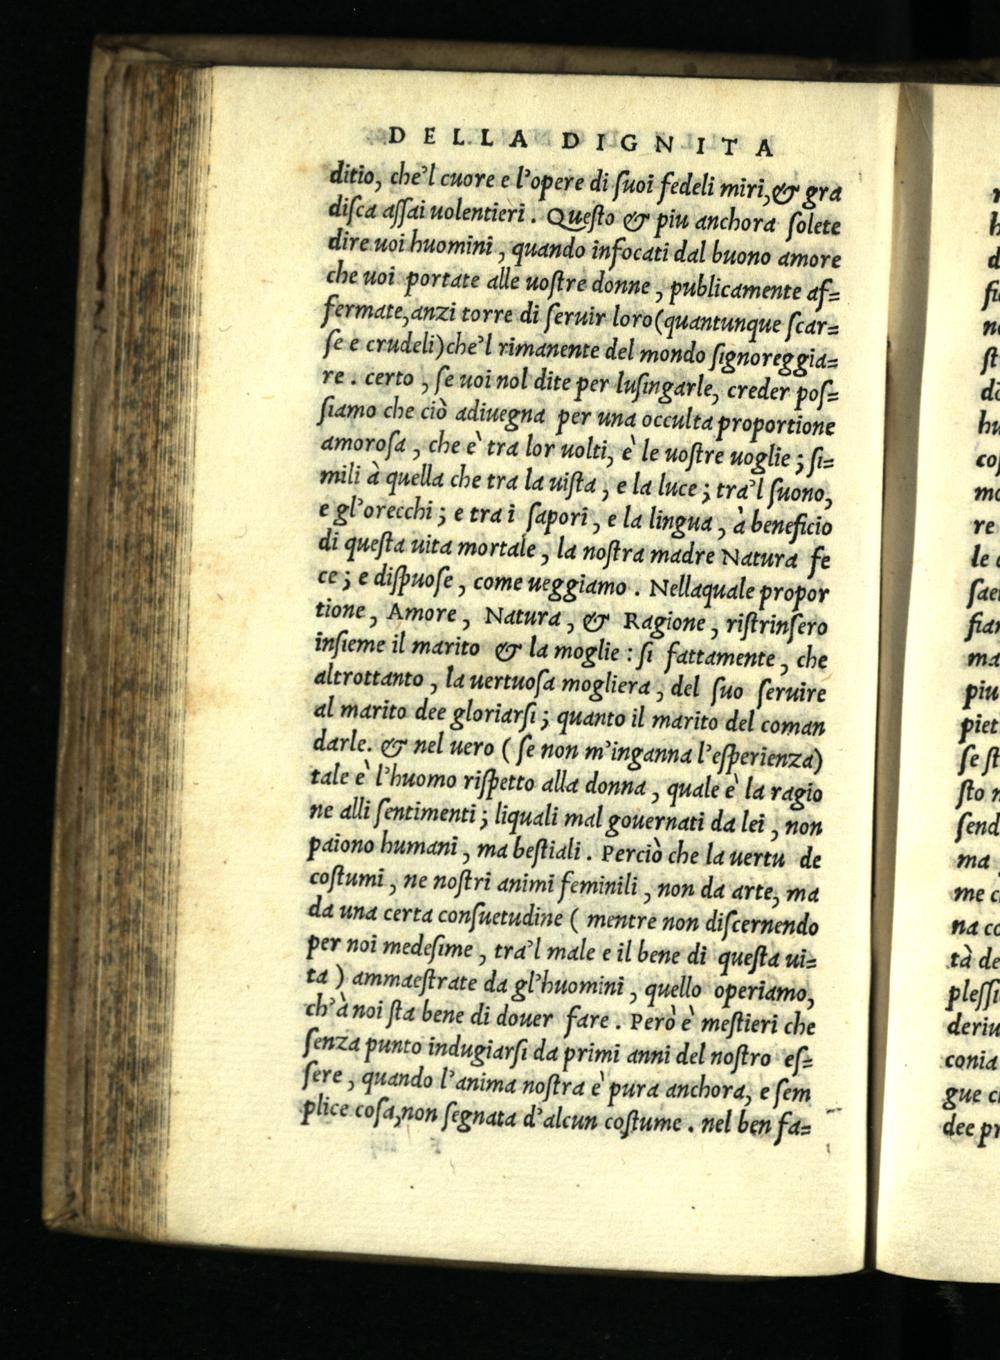 DELLA DIGNITA
ditio, che'l cuore e l'opere di ſuoi fedeli miri, & gra
diſca aſſai uolentieri. Queſto & piu anchora ſolete
dire uoi huomini, quando infocati dal buono amore
che uoi portate alle uoſtre donne, publicamente af=
fermate, anzi torre di ſeruir loro (quantunque ſcar=
ſe e crudeli) che'l rimanente del mondo ſignoreggia=
re. certo, ſe uoi nol dite per luſingarle, creder poſ=
ſiamo che ciò adiuegna per una occulta proportione
amoroſa, che è tra lor uolti, è le uoſtre uoglie; ſi=
mili à quella che tra la uiſta, e la luce; tra'l ſuono,
e gl'orecchi; e tra i ſapori, e la lingua, à beneficio
di queſta uita mortale, la noſtra madre Natura fe
ce; e diſpuoſe, come ueggiamo. Nellaquale propor
tione, Amore, Natura, & Ragione, riſtrinſero
inſieme il marito & la moglie: ſi fattamente, che
altrottanto, la uertuoſa mogliera, del ſuo ſeruire
al marito dee gloriarſi; quanto il marito del coman
darle. & nel uero (ſe non m'inganna l'eſperienza)
tale è l'huomo riſpetto alla donna, quale è la ragio
ne alli ſentimenti; liquali mal gouernati da lei, non
paiono humani, ma beſtiali. Perciò che la uertu de
coſtumi, ne noſtri animi feminili, non da arte, ma
da una certa conſuetudine (mentre non diſcernendo
per noi medeſime, tra'l male e il bene di queſta ui=
ta) ammaeſtrate da gl'huomini, quello operiamo,
ch'à noi ſta bene di douer fare. Però è meſtieri che
ſenza punto indugiarſi da primi anni del noſtro eſ=
ſere, quando l'anima noſtra è pura anchora, e ſem
plice coſa, non ſegnata d'alcun coſtume. nel ben fa=